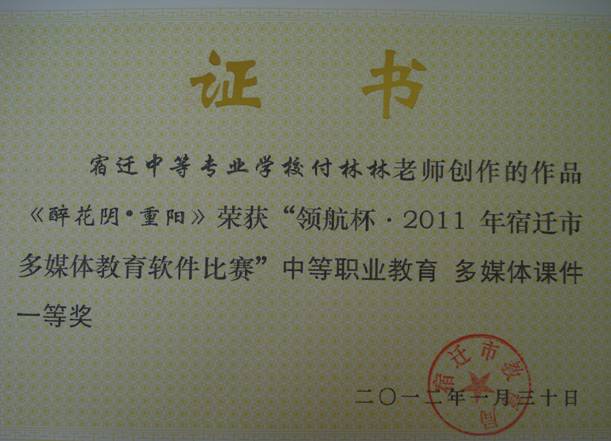 证 书
宿迁中等专业学校付林林老师创作的作品
《醉花阴•重阳》荣获“领航杯·2011 年宿迁市
多媒体教育软件比赛”中等职业教育 多媒体课件
一等奖
宿迁市教育局
二〇一二年一月三十日